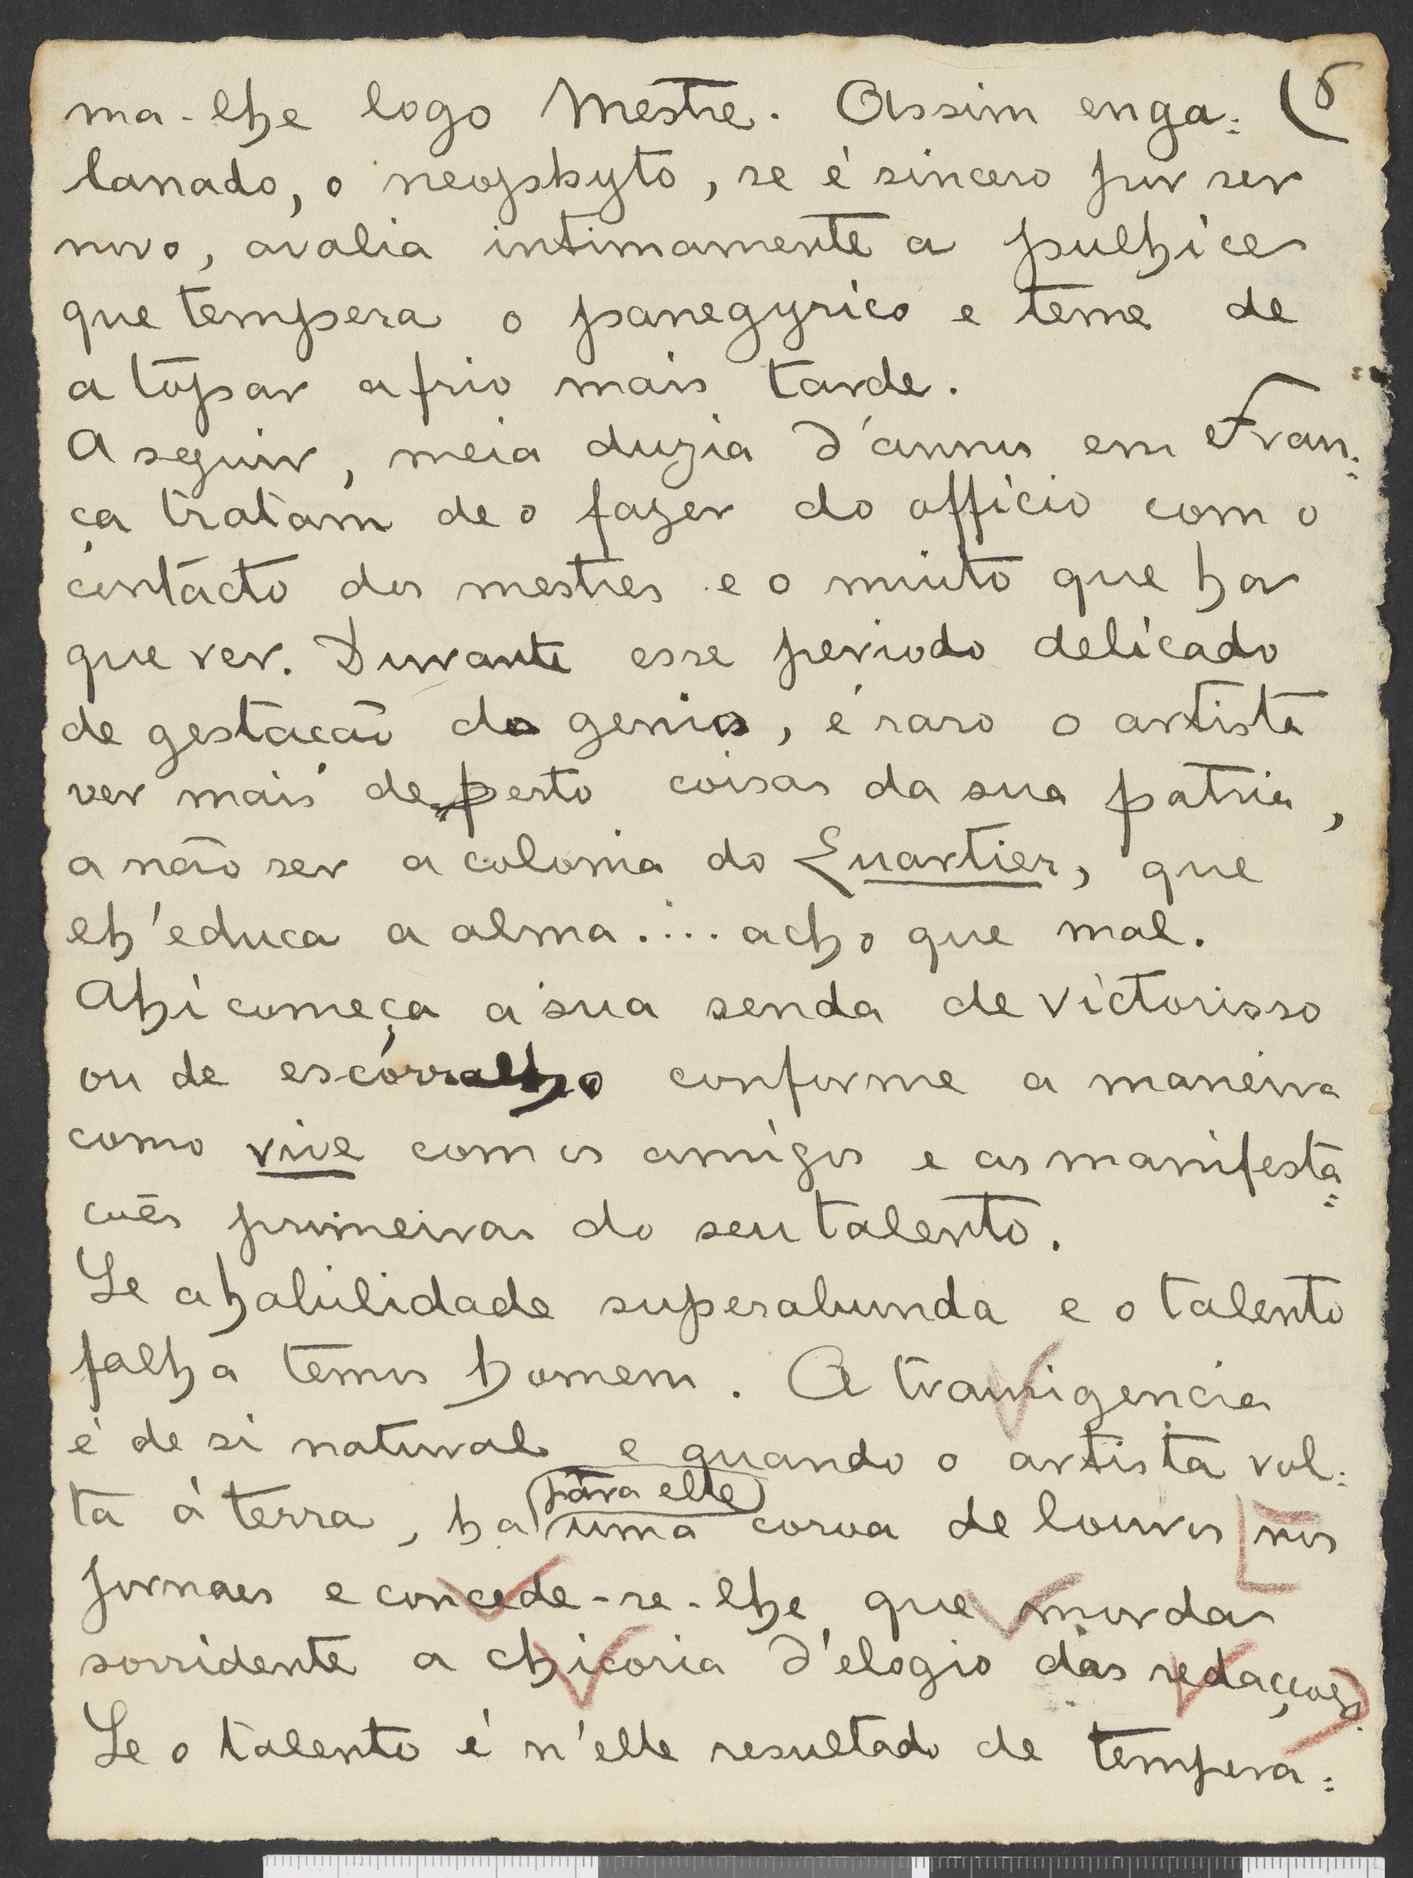 ma-lhe logo Mestre. Assim enga= (8
lanado, o neophyto, se é sincero por ser
novo, avalia intimamente a pulhice
que tempera o panegyrico e teme de
a topar a frio mais tarde.
A seguir, meia duzia d'annos em Fran=
ça tratam de o fazer do officio com o
contacto dos mestres e o muito que ha
que ver. Durante esse periodo delicado
de gestação do genio, é raro o artista
ver mais de perto coisas da sua patria,
a não ser a colonia do Quartier, que
lh'educa a alma.... acho que mal.
Ahi começa a sua senda de victorioso
ou de escórralho conforme a maneira
como vive com os amigos e as manifesta=
ções primeiras do seu talento.
Se a habilidade superabunda e o talento
falha temos homem. A transigencia
é de si natural e quando o artista vol=
para elle
ta á terra, ha uma coroa de louros nos
jornaes e concede-se-lhe que morda
sorridente a chicoria d'elogio das redacções.
Se o talento é n'elle resultado de tempera=